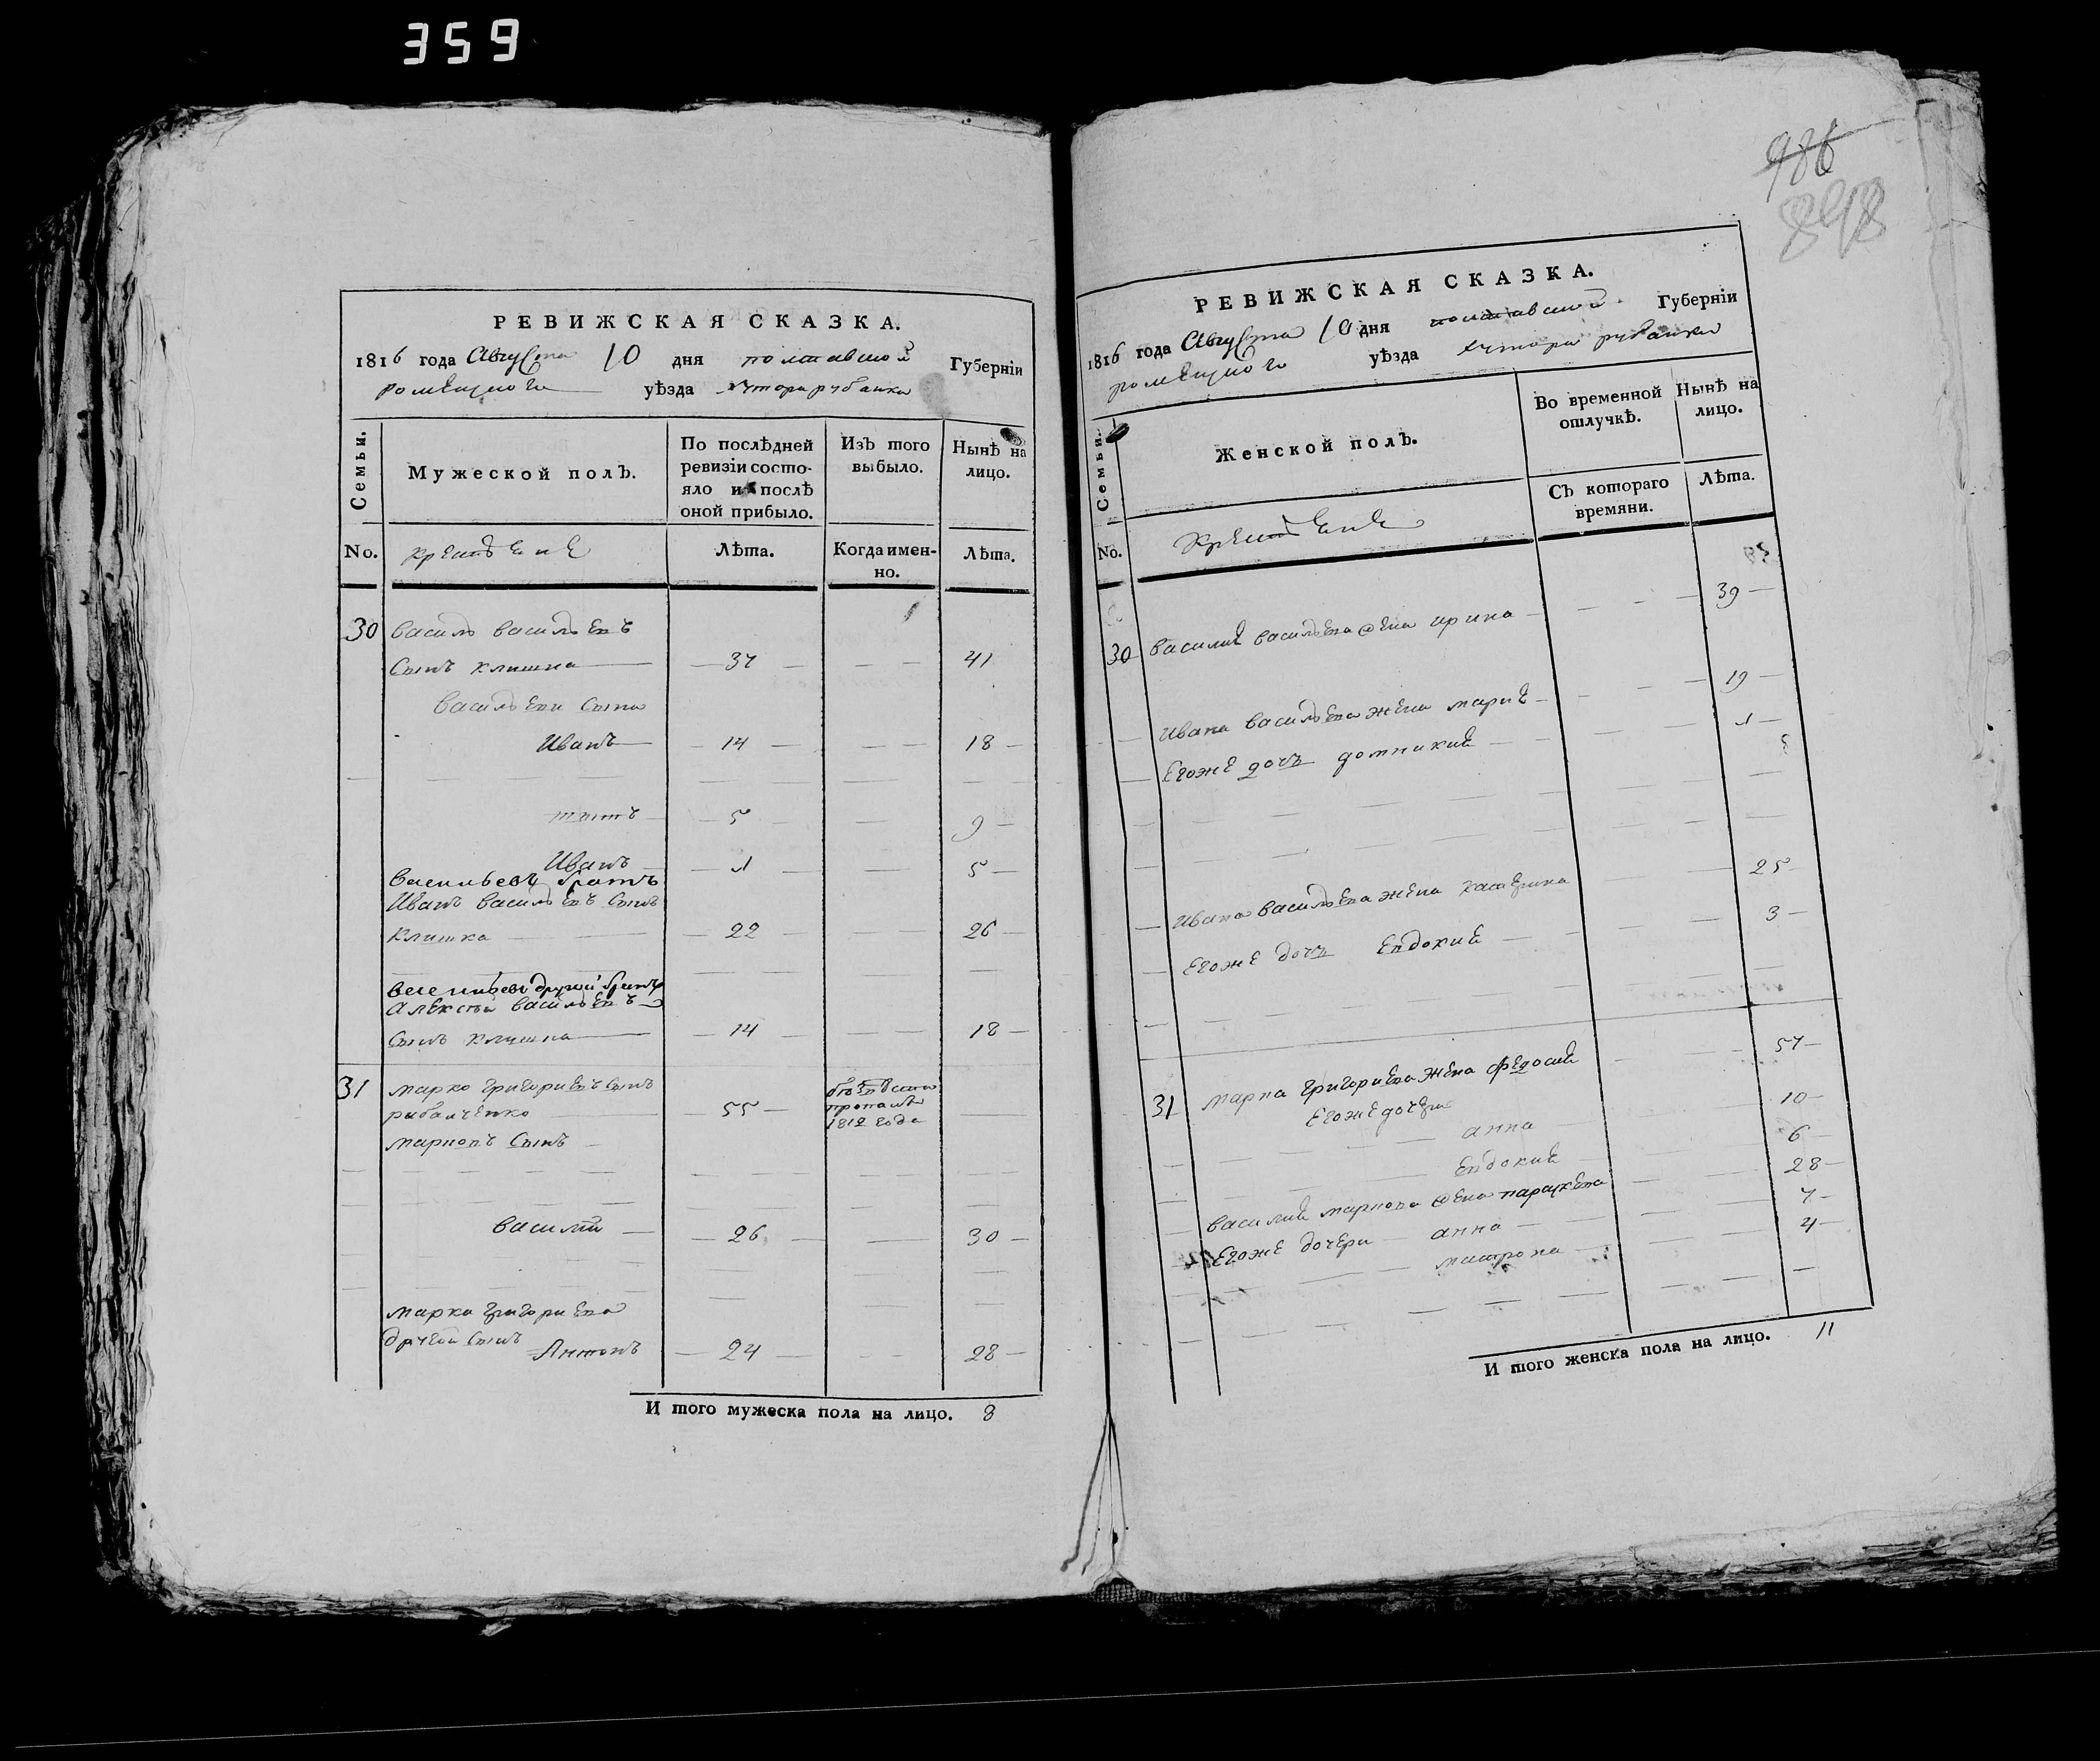 359
986
898
РЕВИЖСКАЯ СКАЗКА.
1816 года Августа 10 дня полтавской Губерніи
роменского уѣзда хутора рубанки
Семьи.
Мужеской полЪ.
По послѣдней ревизіи состо-
яло и послѣ
оной прибыло.
ИзЪ того
выбыло.
Нынѣ на
лицо.
No.
Лѣта.
Когда имен-
но.
Лѣта.
30 василь васильевъ
Сынъ клишка 37 41
васильеви Сыны
Иванъ 14 18
5 9
Иванъ 1 5
васильевъ братъ
Иванъ васильевъ Сынъ
клишка 22 26
васильевъ другой братъ
Алексѣй васильевъ
Сынъ клишка 14 18
31 марко григориевъ Сынъ 55
марковъ Сынъ
пропалъ
1812 года
василий 26 30
марка григориева
другой Сынъ Антонъ 24 28
И того мужеска пола на лицо. 8
РЕВИЖСКАЯ СКАЗКА.
1816 года Августа 10 дня полтавской Губерніи
роменского уѣзда хутора рубанки
Семьи.
Женской полЪ.
Во временной
отлучкѣ.
Нынѣ на
лицо.
СЪ котораго
времяни.
Лѣта.
No.
30 василия васильева жена ирина 39
Ивана васильева жена мария 19
Егоже дочь домникия 1
Ивана васильева жена катерина 25
Егоже дочь Евдокия 3
31 марка григориева жена федосия 57
Егоже дочери
анна 10
Евдокия 6
василия маркова жена параскева 28
Егоже дочери анна 7
матрона 4
И того женска пола на лицо. 11